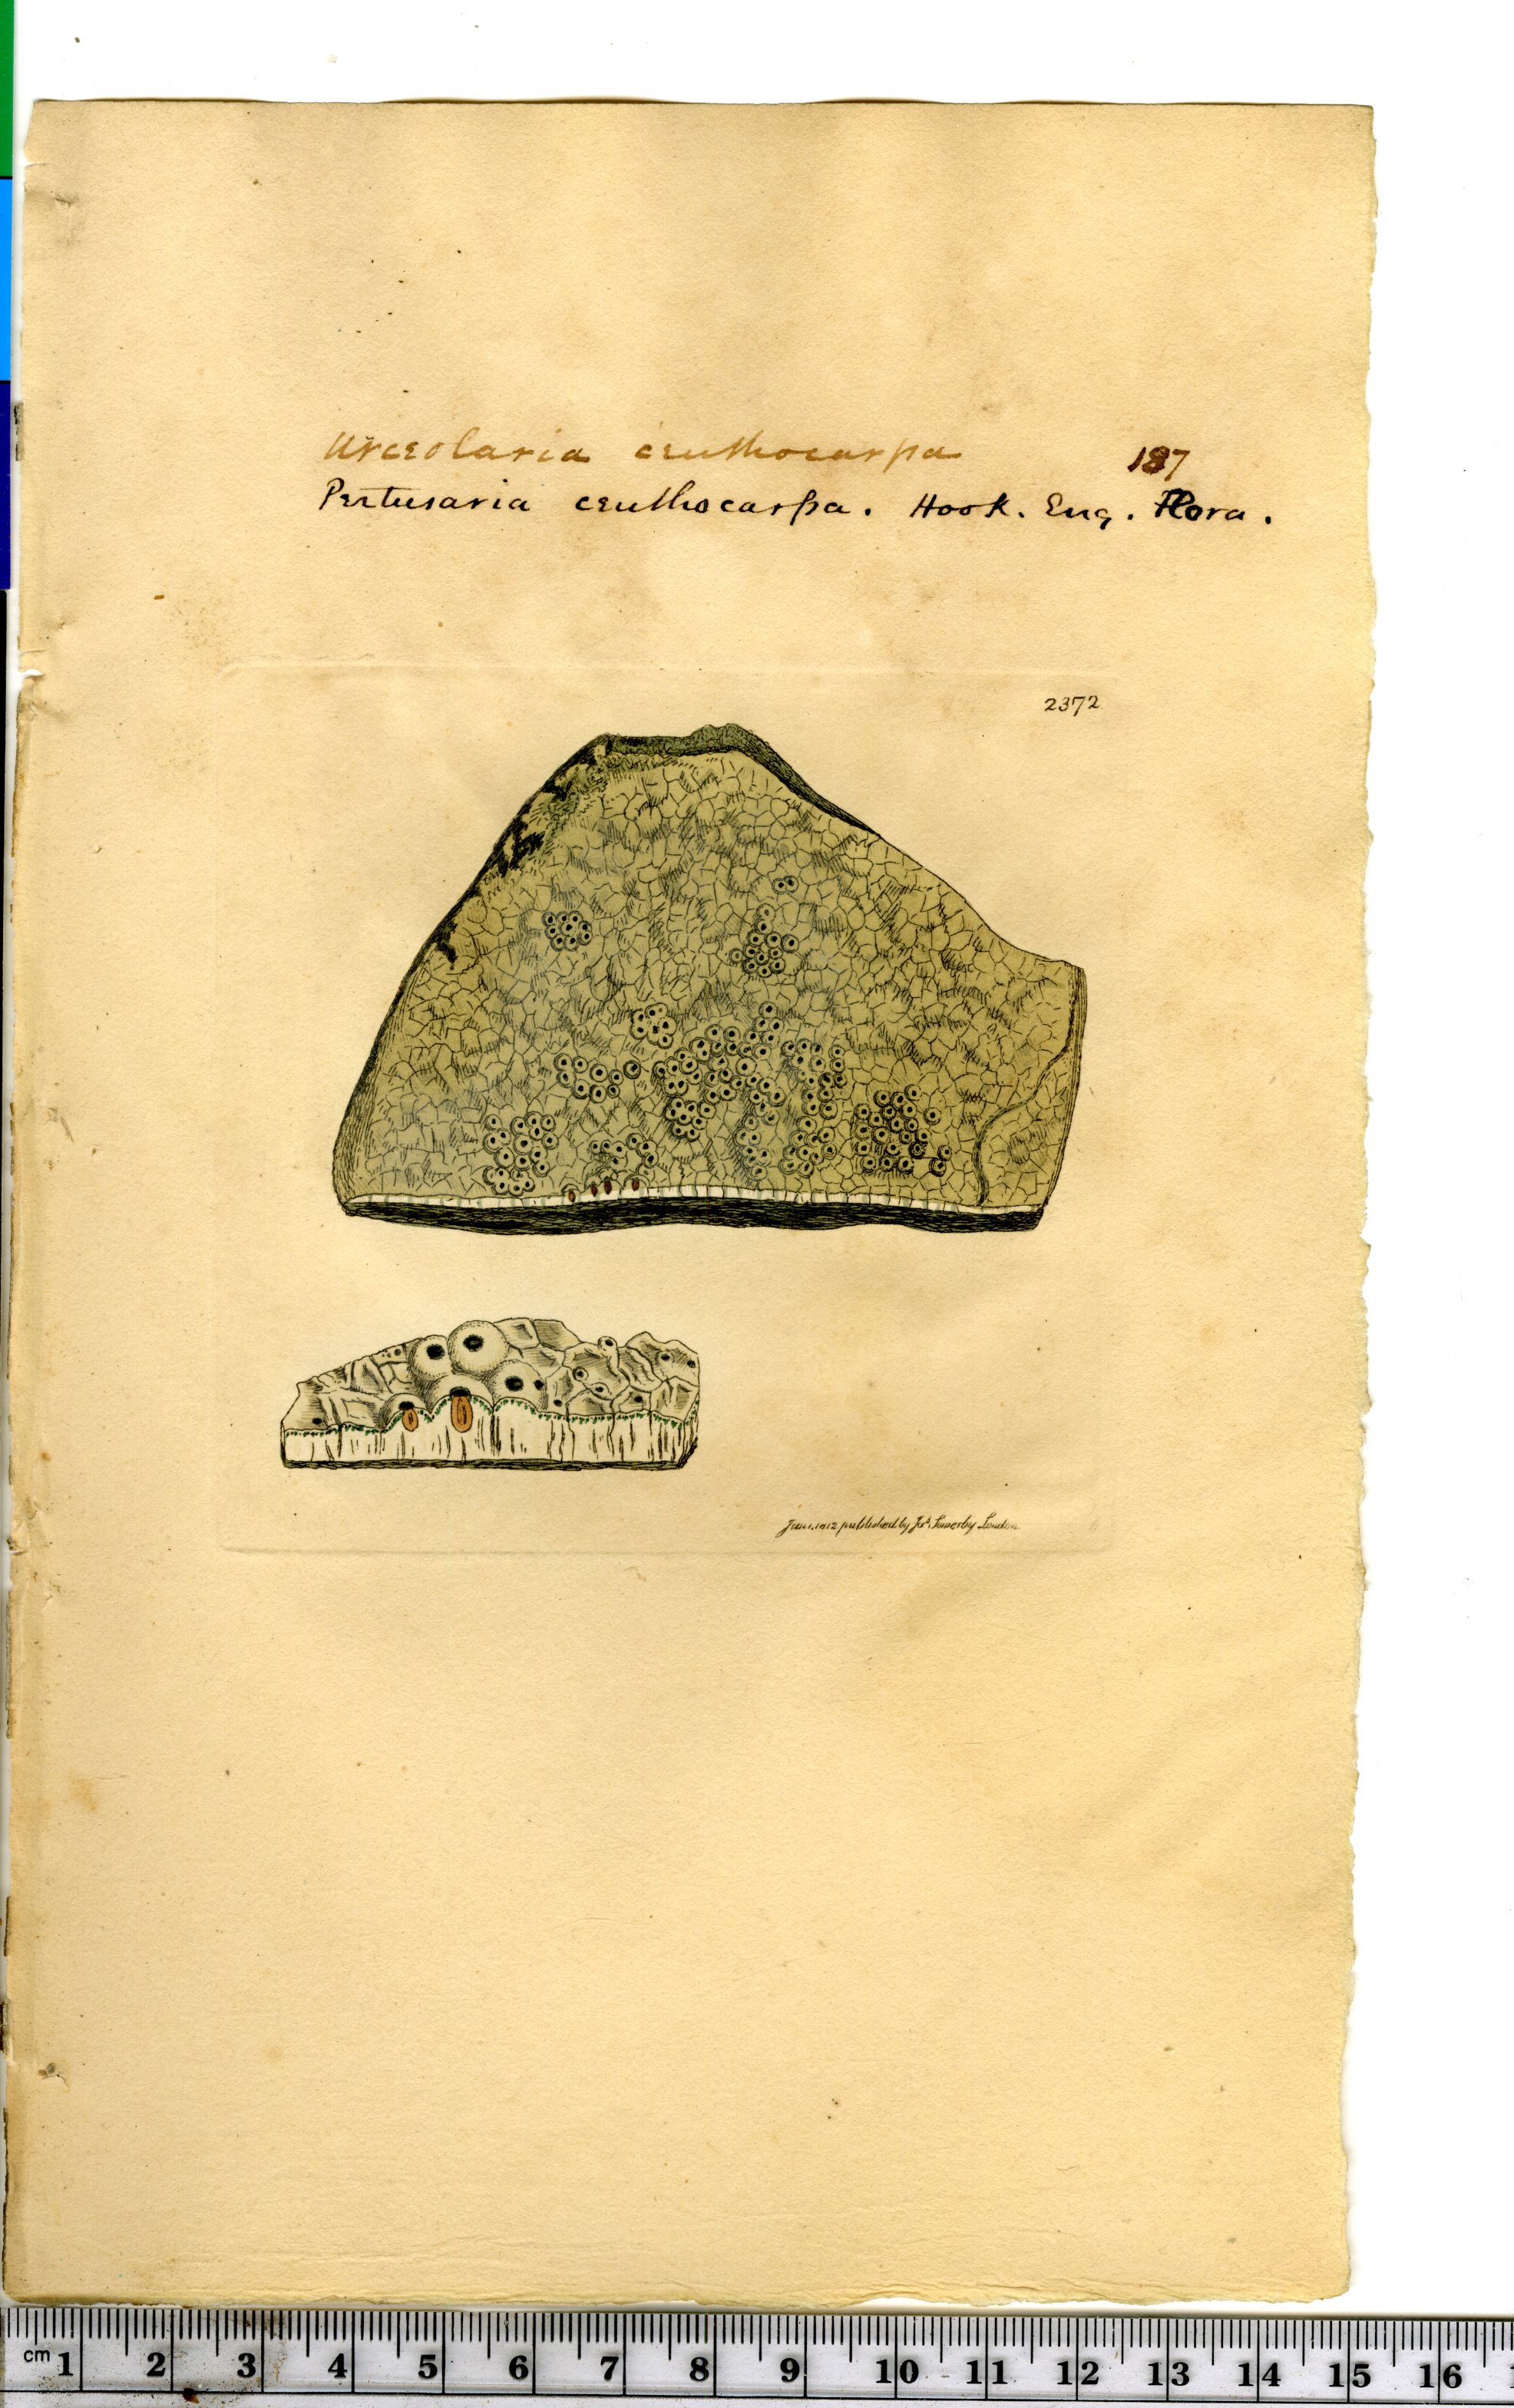 Urceolaria ceuthocarpa 187
Pertusaria ceuthocarpa. Hook. Eng. Flora.
2372
Jan.1.1812 published by Jas. Sowerby London
cm 1 2 3 4 5 6 7 8 9 10 11 12 13 14 15 16